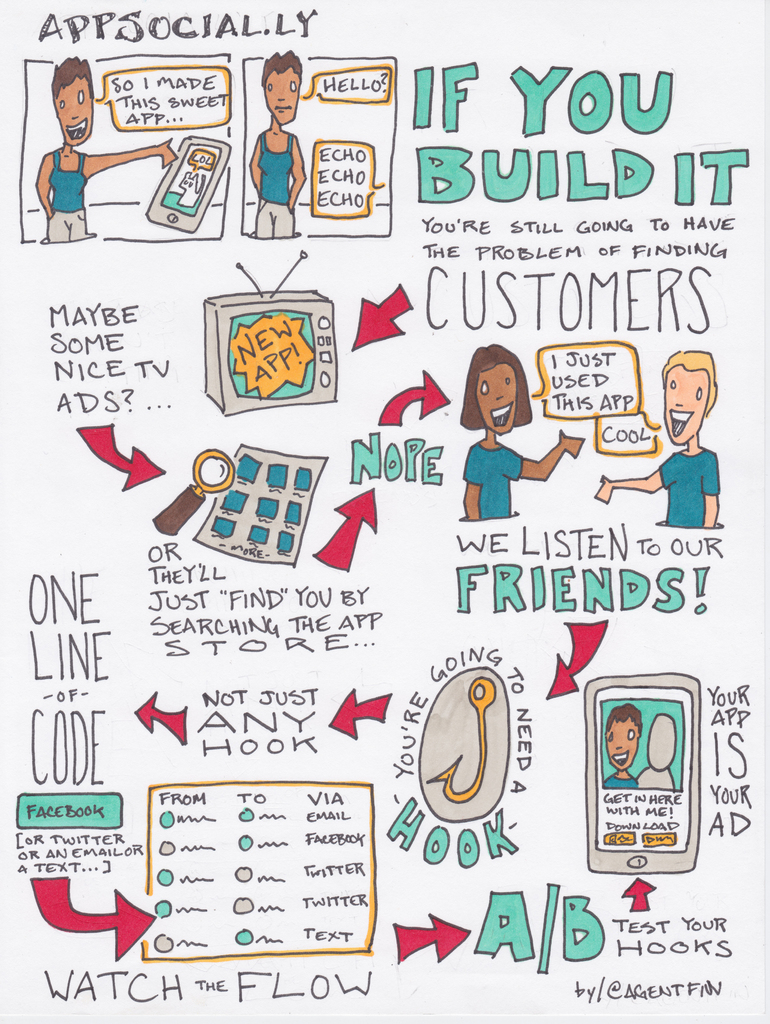 APPSOCIAL.LY
SO I MADE
THIS SWEET
APP...
LOL
HELLO?
ECHO
ECHO
ECHO
IF YOU
BUILD IT
YOU'RE STILL GOING TO HAVE
THE PROBLEM OF FINDING
CUSTOMERS
MAYBE
SOME
NICE TV
ADS? ...
NEW
APP!
- MORE -
OR
THEY'LL
JUST "FIND" YOU BY
SEARCHING THE APP
STORE...
NOPE
I JUST
USED
THIS APP
COOL
WE LISTEN TO OUR
FRIENDS!
YOU'RE GOING TO NEED A
HOOK
NOT JUST
ANY
HOOK
ONE
LINE
-OF-
CODE
FACEBOOK
[OR TWITTER
OR AN EMAIL OR
A TEXT...]
FROM TO VIA
EMAIL
FACEBOOK
TWITTER
TWITTER
TEXT
WATCH THE FLOW
A/B
TEST YOUR
HOOKS
GET IN HERE
WITH ME!
DOWNLOAD
YOUR
APP
IS
YOUR
AD
by/@AGENTFIN